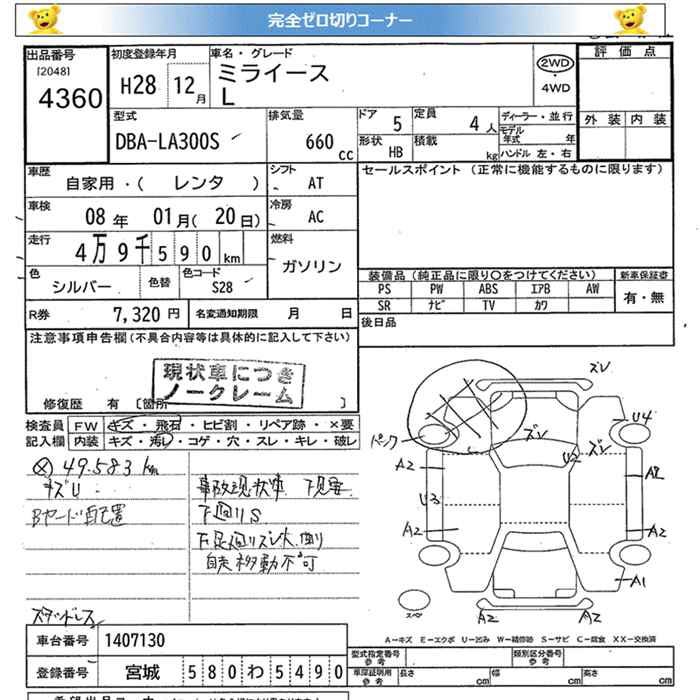 完全ゼロ切りコーナー
出品番号
(2048)
4360
初度登録年月
H28 12月
車名・グレード
ミライース
L
2WD
・
4WD
評価点
外装 内装
型式
DBA-LA300S
排気量
660 cc
ドア 5
定員 4人
形状 HB
積載 kg
ディーラー・並行
モデル年式 年
ハンドル 左・右
車歴
自家用・( レンタ )
シフト
AT
セールスポイント (正常に機能するものに限ります)
車検
08年 01月(20日)
冷房
AC
走行
4万9千590km
燃料
ガソリン
色
シルバー
色替
色コード
S28
装備品(純正品に限り○をつけてください)
新車保証書
PS PW ABS エアB AW
SR ナビ TV カワ
有・無
R券 7,320円
名変通知期限 月 日
後日品
注意事項申告欄(不具合内容等は具体的に記入して下さい)
現状車につき
ノークレーム
修復歴 有 [箇所 ]
検査員記入欄
FW キズ・飛石・ヒビ割・リペア跡・×要
内装 キズ・汚レ・コゲ・穴・スレ・キレ・破レ
49.583 km
キズU
Bヤード配置
事故現状車 下見要
下廻りS
自走移動不可
スタッドレス
パンク
ズV
ズV
ズV
U2
U4
A2
A2
U3
A2
A2
A1
スペ
A2
A2
A-キズ E-エクボ U-凹み W-補修跡 S-サビ C-腐食 XX-交換済
車台番号 1407130
登録番号 宮城 580わ5490
型式指定番号
参考
類別区分番号
参考
車庫証明用
参考
長さ cm
幅 cm
高さ cm